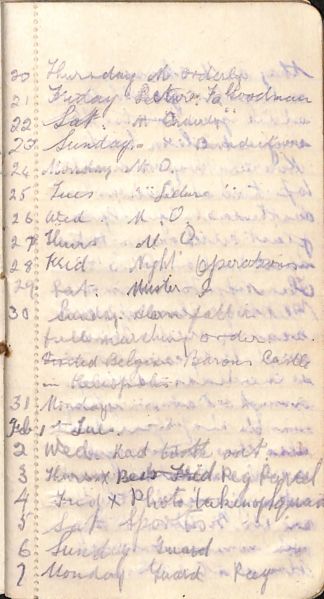 20 Thursday M orderly
21 Friday Lecture Goodman
22 Sat. M Orderly
23 Sunday.
24 Monday M.O.
25 Tues "
26 Wed M.O
27 Thurs M O
28 Frid Night Operations
29 Sat. Muster P
30 Sunday
full marching order
Visited Belgian Barons Castle
in Heliopolis
31 Monday
Feb 1st Tues.
2 Wed. had tooth out
3 Thurs x Reg Parcel
4 Frid x Photo taken of
5 Sat Sports
6 Sunday Guard
7 Monday Guard Pay